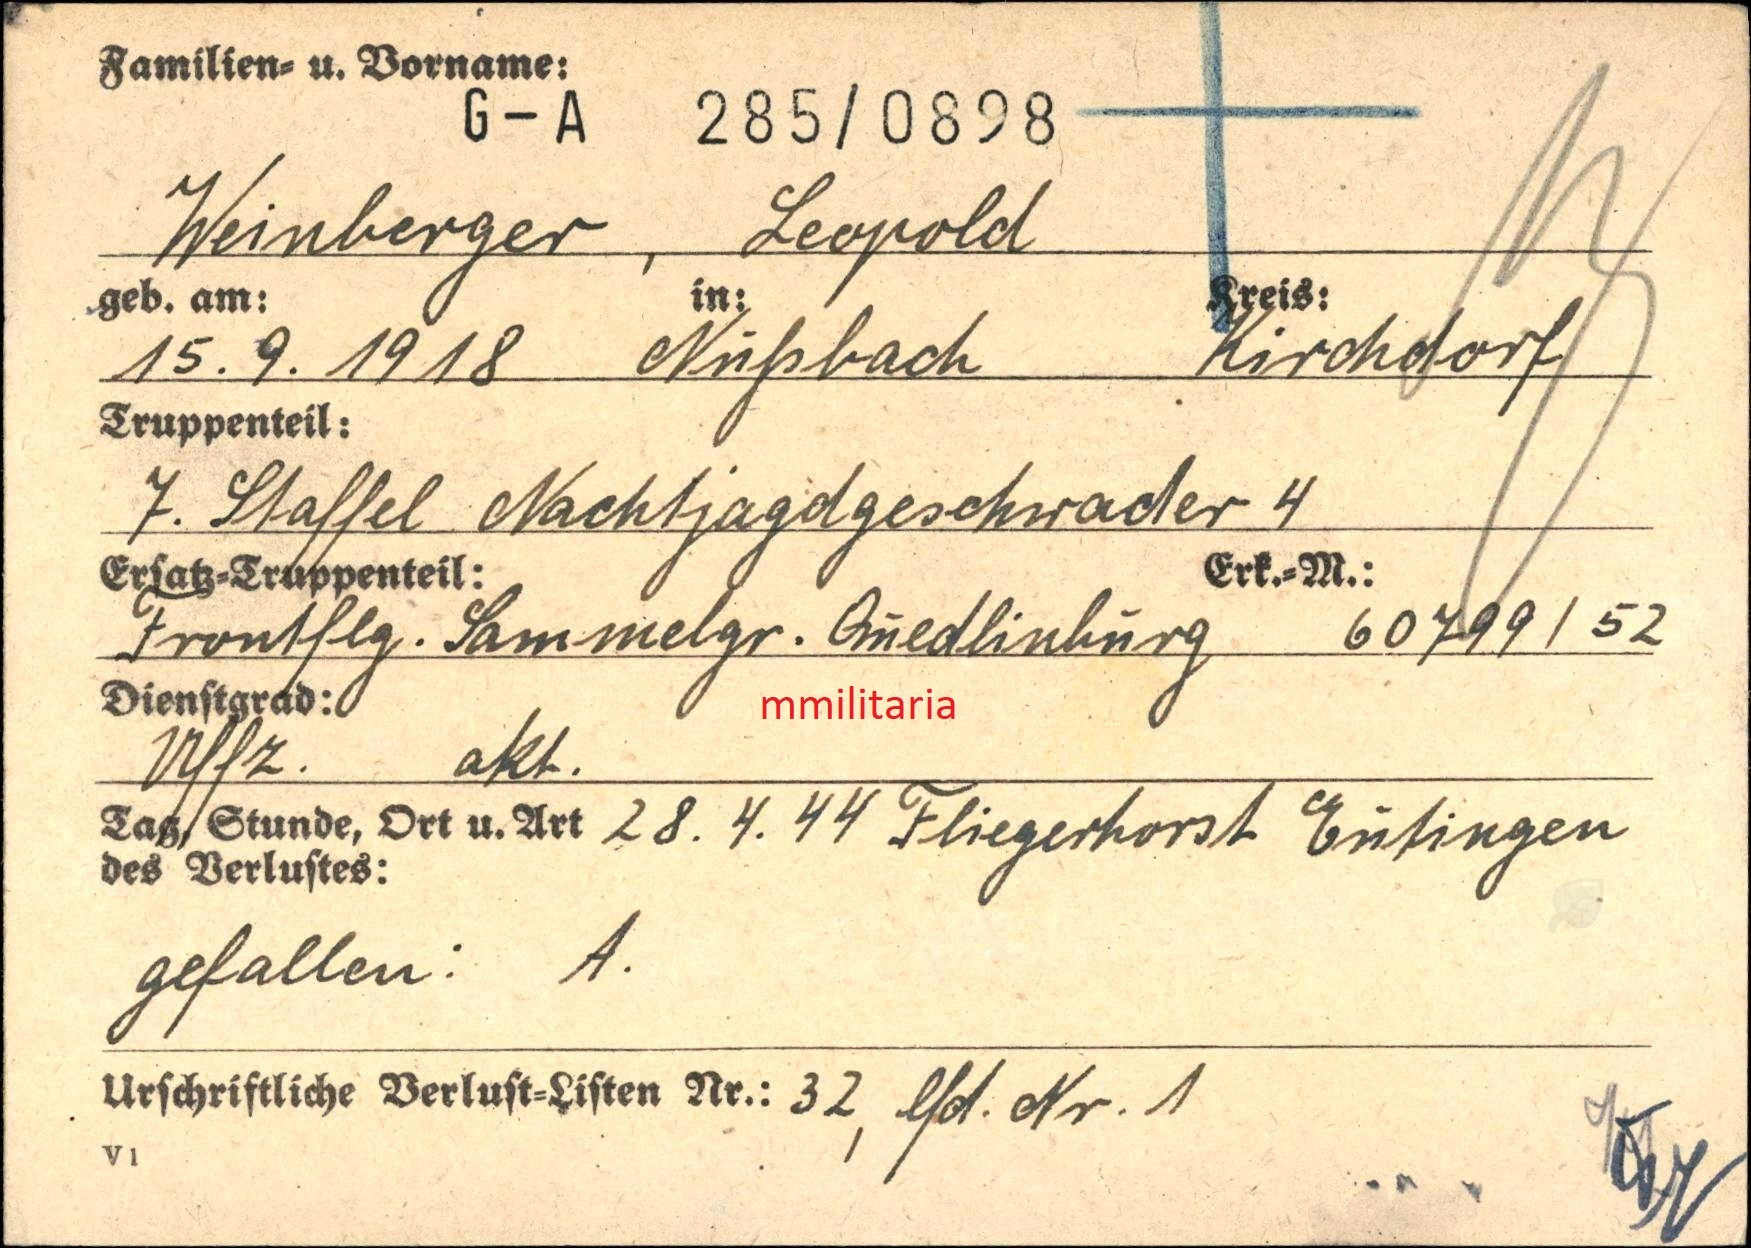 Familien- u. Vorname:
G-A 285/0898
Weinberger, Leopold
geb. am: in: Kreis:
15.9.1918 Nußbach Kirchdorf
Truppenteil:
7. Staffel Nachtjagdgeschwader 4
Ersatz-Truppenteil: Erk.-M.:
Frontflg. Sammelgr. Quedlinburg 60799/52
Dienstgrad:
mmilitaria
Uffz. akt.
Tag, Stunde, Ort u. Art 28.4.44 Fliegerhorst Eutingen
des Verlustes:
gefallen: A.
Urschriftliche Verlust-Listen Nr.: 32, lfd. Nr. 1
V 1